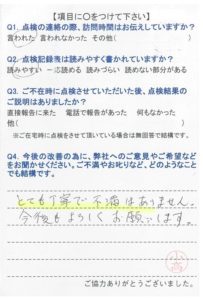 【項目に○をつけて下さい】
Q1. 点検の連絡の際、訪問時間はお伝えしていますか？
言われた 言われなかった その他( )
Q2. 点検記録表は読みやすく書かれていますか？
読みやすい 一応読める 読みづらい 読めない部分がある
Q3. ご不在時に点検させていただいた後、点検結果の
ご説明はありましたか？
直接報告に来た 電話で報告があった 何もなかった
他( )
※ご在宅時に点検をさせて頂いている場合は無回答で結構です。
Q4. 今後の改善の為に、弊社へのご意見やご希望などを
お聞かせください。ご不満やお叱りなど、どのようなこと
でも結構です。
とても丁寧で不満はありません。
今後もよろしくお願いします。
小高
ご協力ありがとうございました。